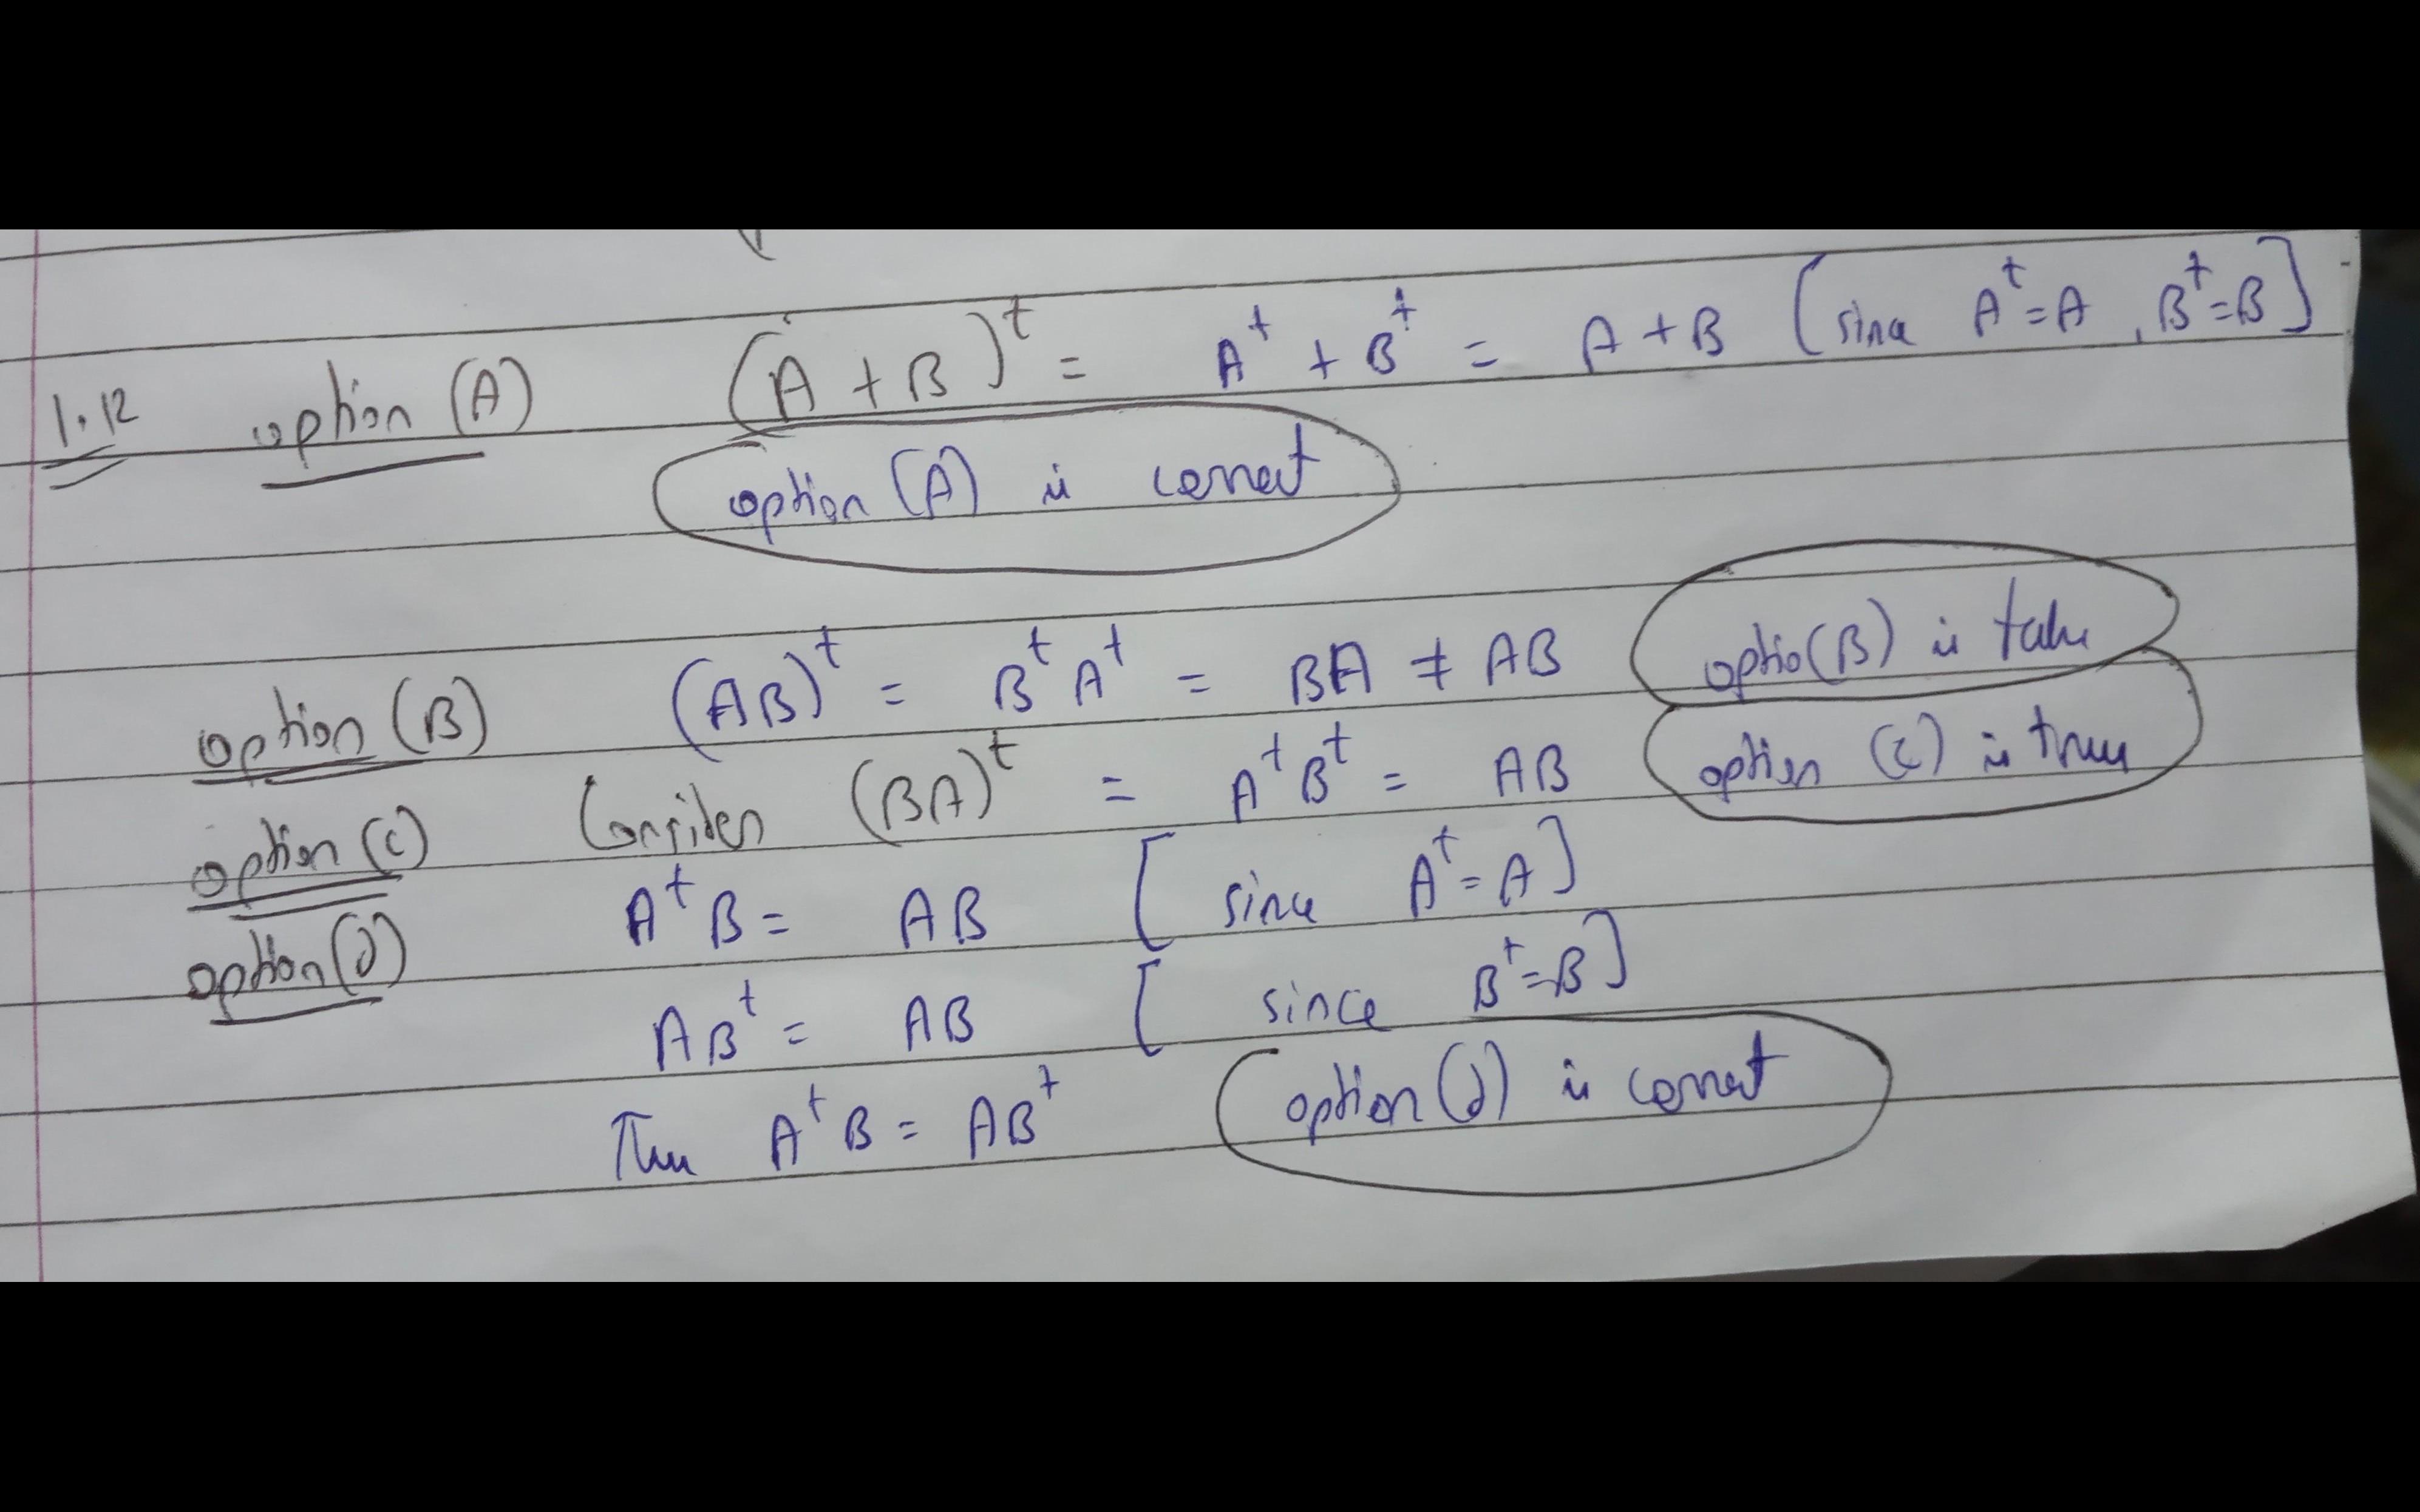 1.12 option (A) (A + B)^t = A^t + B^t = A + B [since A^t = A, B^t = B]
option (A) is correct
option (B) (AB)^t = B^t A^t = BA ≠ AB optio(B) is false
option (C) Consider (BA)^t = A^t B^t = AB option (C) is true
option (d) A^t B = AB [since A^t = A]
AB^t = AB [since B^t = B]
Thus A^t B = AB^t option (d) is correct